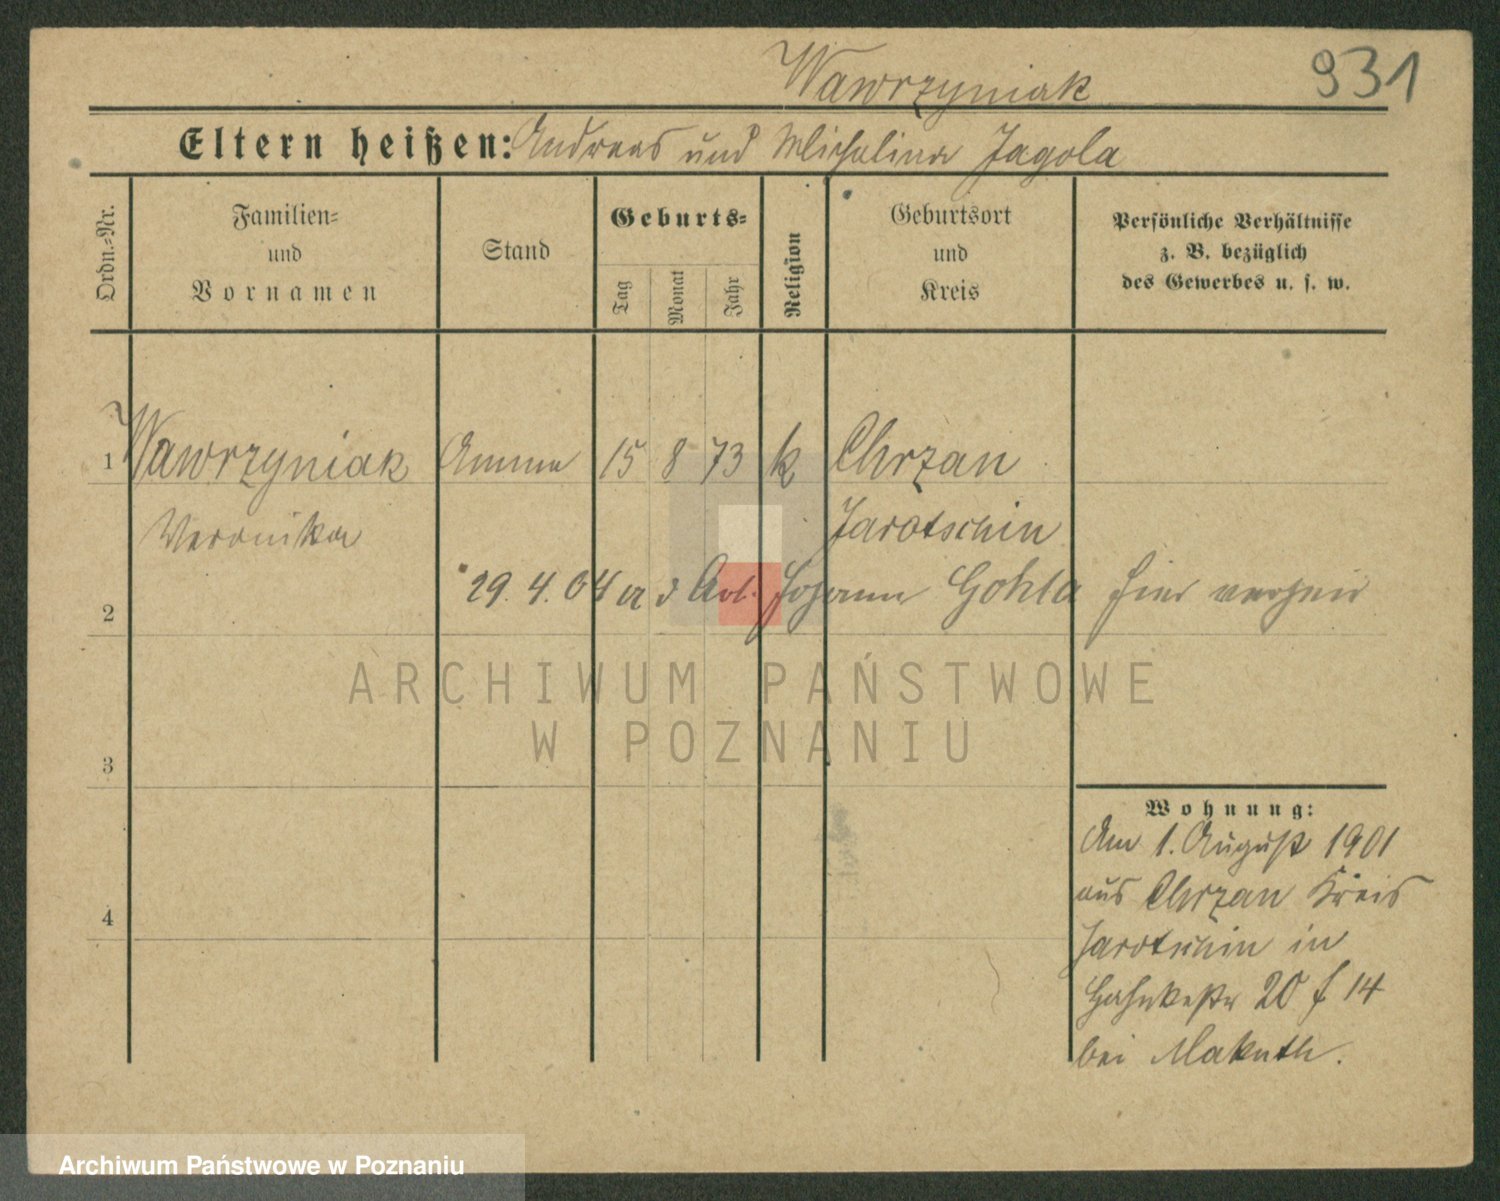 Wawrzyniak 931
Eltern heißen: Andreas und Michalina Jagola
Ordn.-Nr.
Familien-
und
Vornamen
Stand
Geburts-
Tag
Monat
Jahr
Religion
Geburtsort
und
Kreis
Persönliche Verhältnisse
z. B. bezüglich
des Gewerbes u. s. w.
1 Wawrzyniak Amme 15 8 73 k Chrzan
Veronika Jarotschin
2 29. 4. 04 a d Arb. Johann Gohla hier verheir
ARCHIWUM PAŃSTWOWE
W POZNANIU
3
Wohnung:
Am 1. August 1901
aus Chrzan Kreis
4
Jarotschin in
20 f 14
bei Makuth.
Archiwum Państwowe w Poznaniu